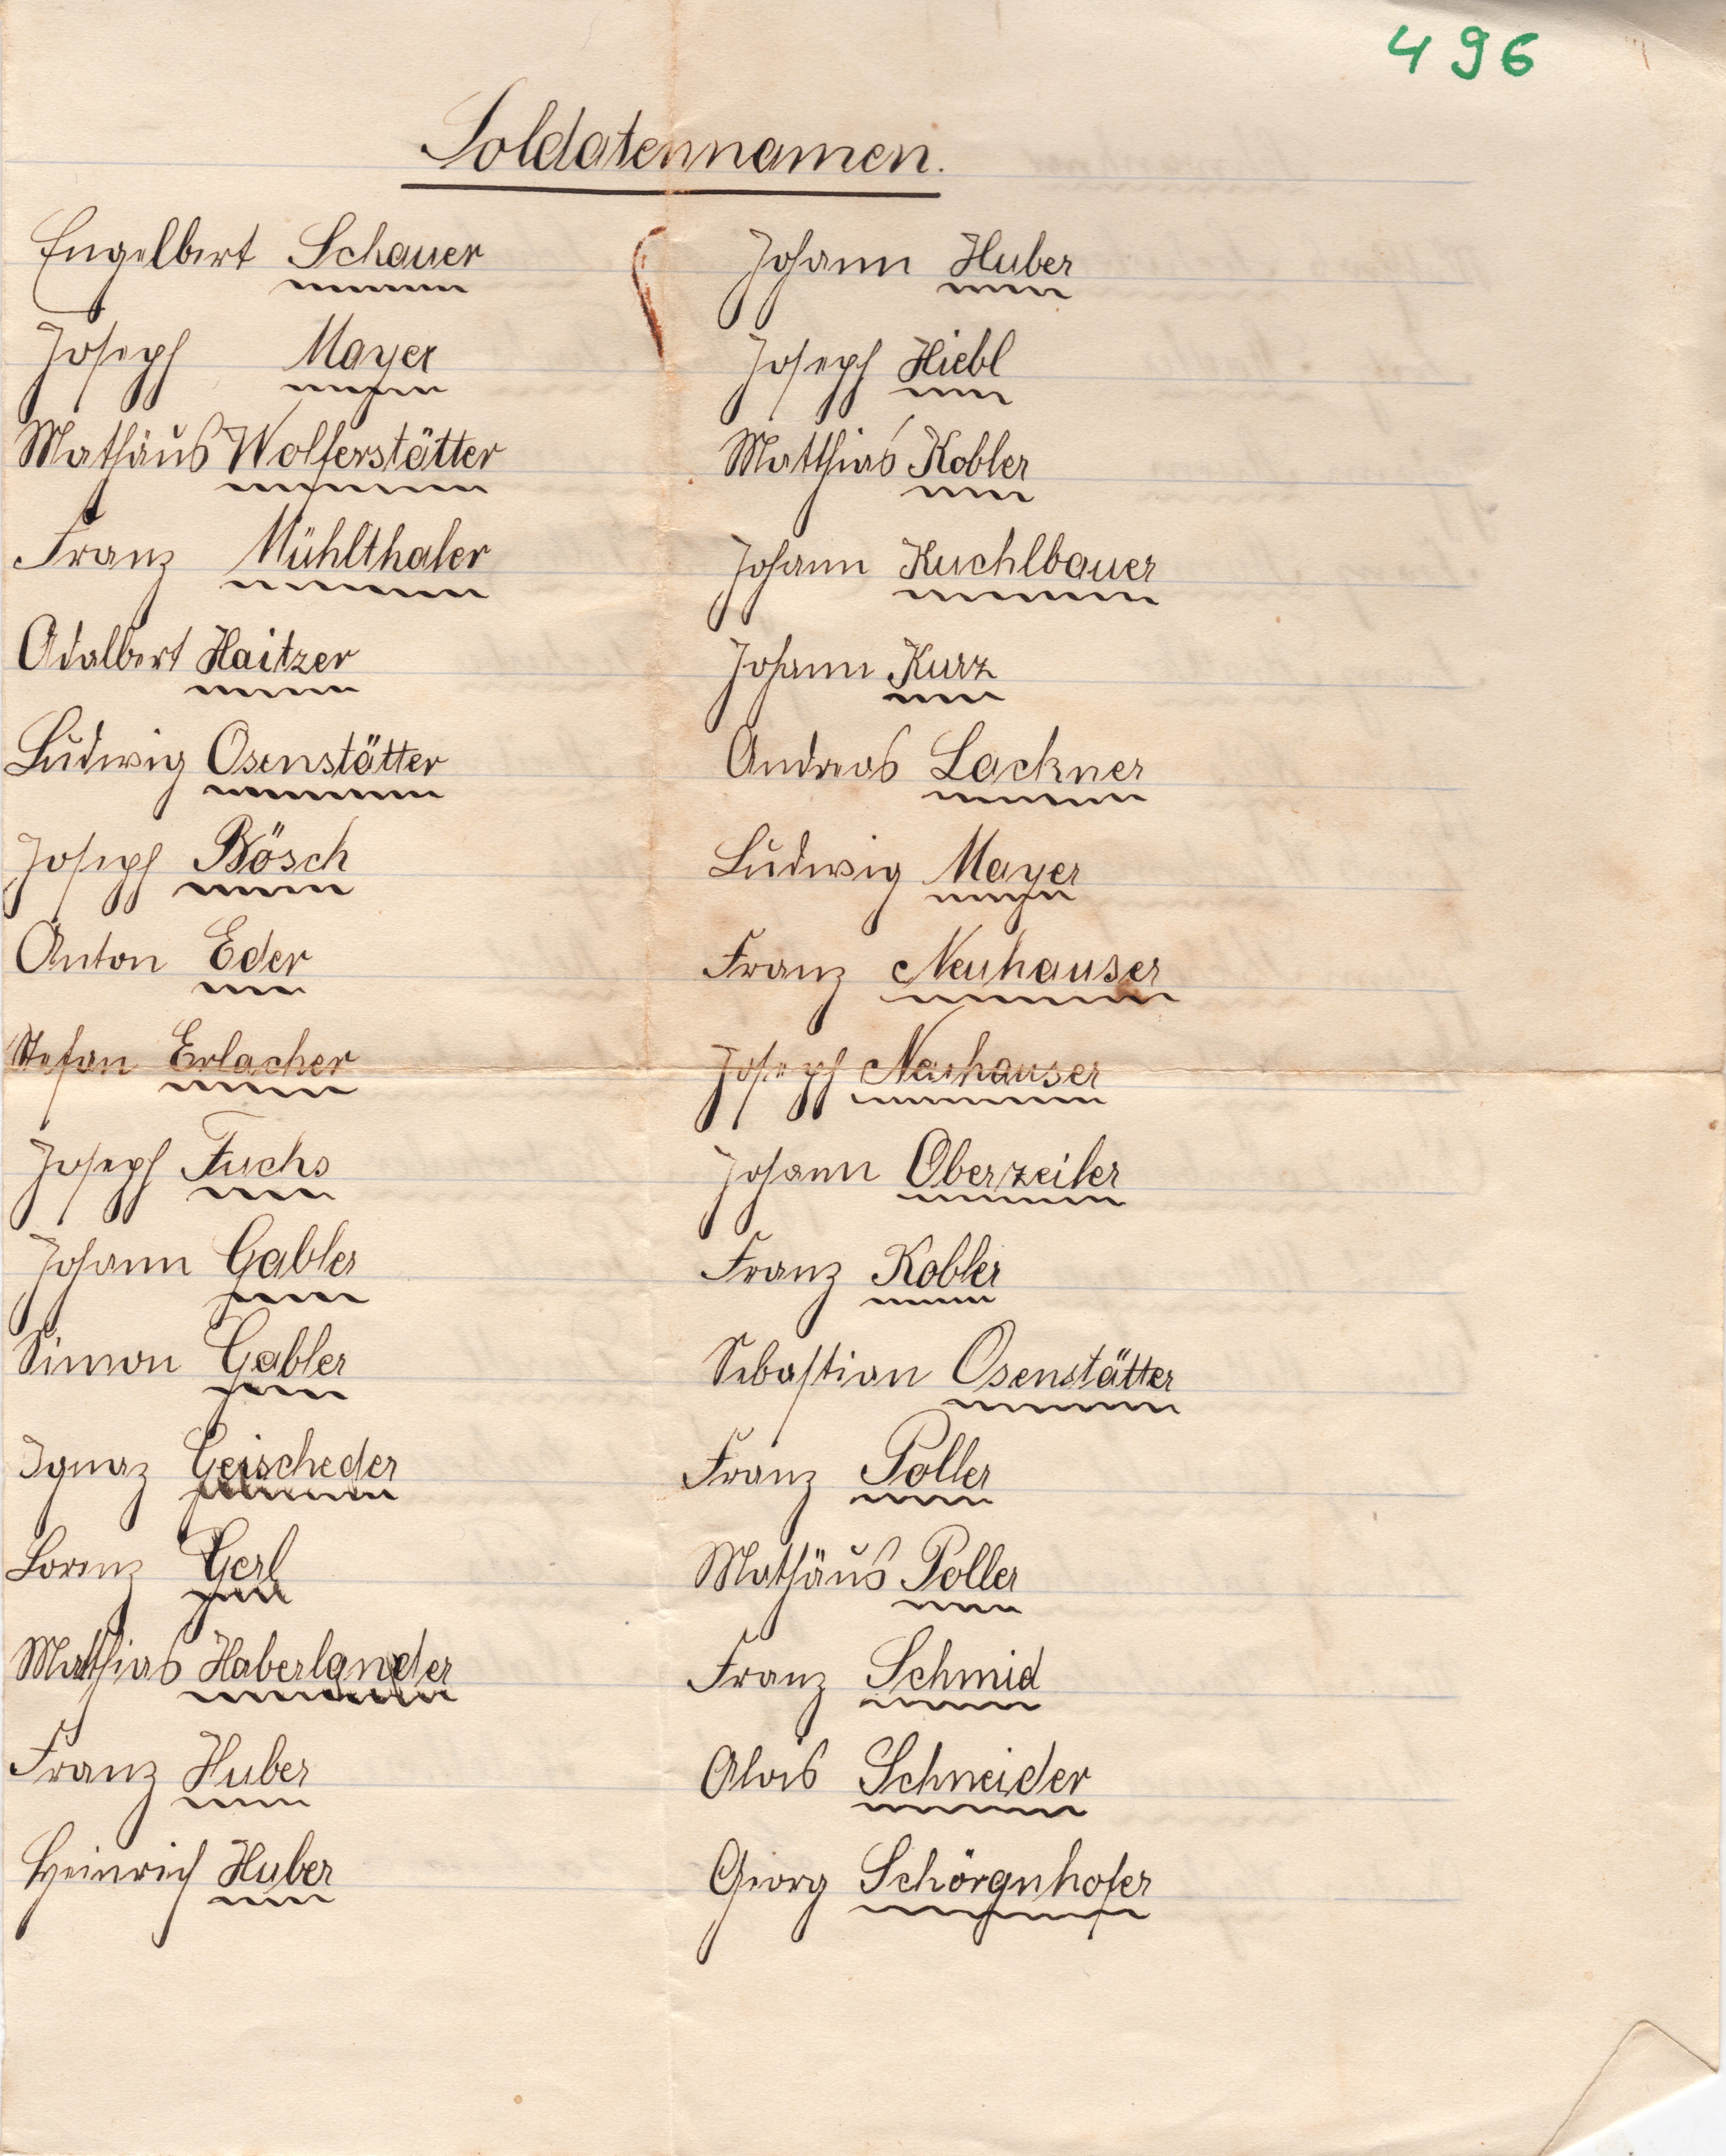 496
Soldatennamen.
Engelbert Schauer
Joseph Mayer
Mathäus Wolferstätter
Franz Mühlthaler
Adalbert Haitzer
Ludwig Osenstätter
Joseph Bösch
Anton Eder
Stefan Erlacher
Joseph Fuchs
Johann Gabler
Simon Gabler
Ignaz Geischeder
Lorenz Gerl
Mathias Haberlander
Franz Huber
Heinrich Huber
Johann Huber
Joseph Hiebl
Matthias Kobler
Johann Kuchlbauer
Johann Kurz
Andreas Lackner
Ludwig Mayer
Franz Neuhauser
Joseph Neuhauser
Johann Oberzeiler
Franz Kobler
Sebastian Osenstätter
Franz Poller
Mathäus Poller
Franz Schmid
Alois Schneider
Georg Schörgnhofer